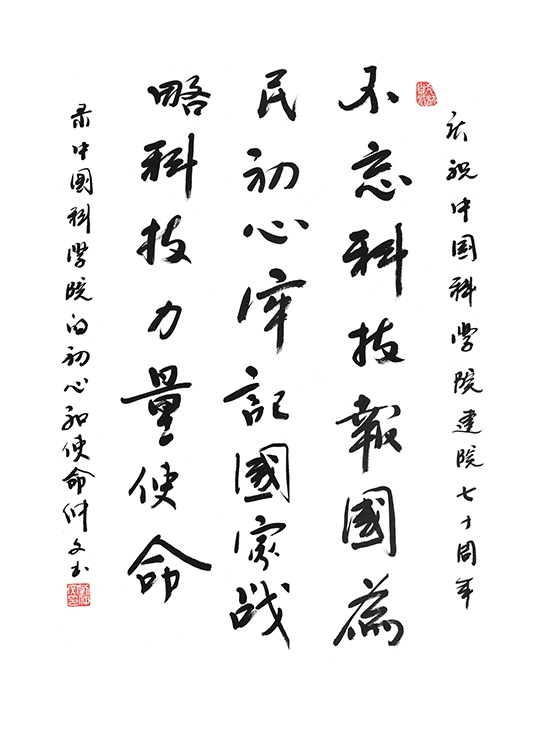 庆祝中国科学院建院七十周年
不忘科技報國為
民初心牢記國家战
略科技力量使命
录中国科学院的初心和使命仲文书